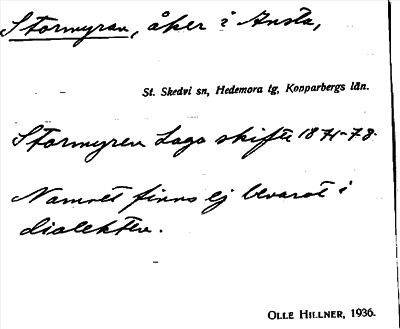 Stormyran, åker i Ansta,
St. Skedvi sn, Hedemora tg, Kopparbergs län.
Stormyren Laga skifte 1871-78.
Namnet finns ej bevarat i
dialekten.
OLLE HILLNER, 1936.